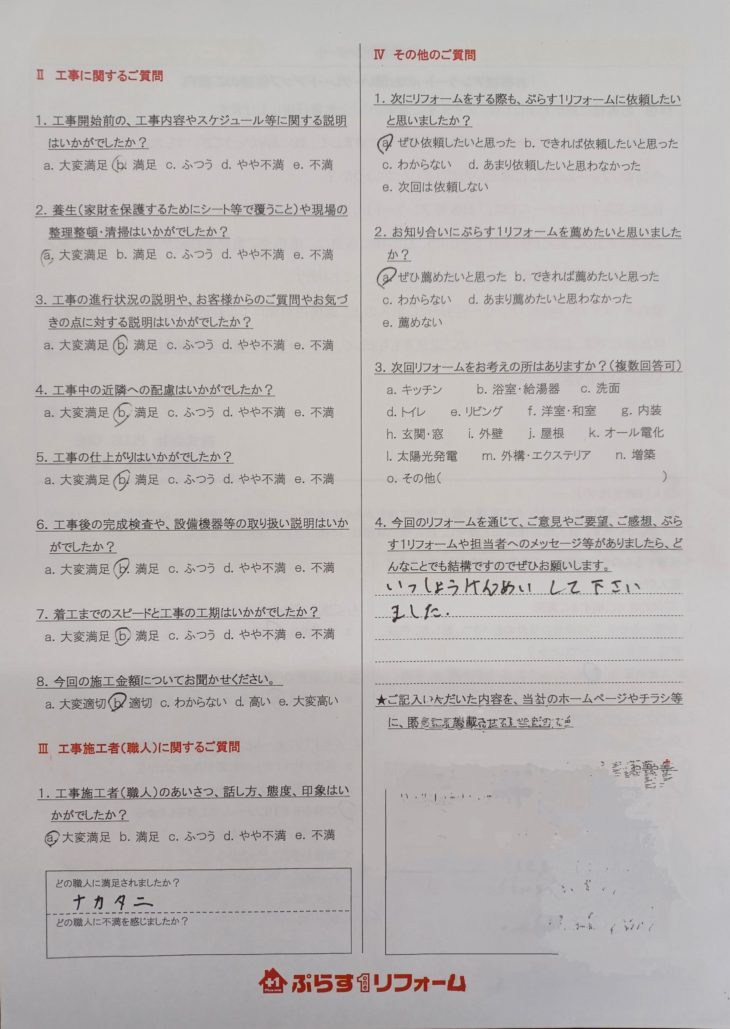 Ⅱ 工事に関するご質問
1. 工事開始前の、工事内容やスケジュール等に関する説明
はいかがでしたか？
a. 大変満足 b. 満足 c. ふつう d. やや不満 e. 不満
2. 養生（家財を保護するためにシート等で覆うこと）や現場の
整理整頓・清掃はいかがでしたか？
a. 大変満足 b. 満足 c. ふつう d. やや不満 e. 不満
3. 工事の進行状況の説明や、お客様からのご質問やお気づ
きの点に対する説明はいかがでしたか？
a. 大変満足 b. 満足 c. ふつう d. やや不満 e. 不満
4. 工事中の近隣への配慮はいかがでしたか？
a. 大変満足 b. 満足 c. ふつう d. やや不満 e. 不満
5. 工事の仕上がりはいかがでしたか？
a. 大変満足 b. 満足 c. ふつう d. やや不満 e. 不満
6. 工事後の完成検査や、設備機器等の取り扱い説明はいか
がでしたか？
a. 大変満足 b. 満足 c. ふつう d. やや不満 e. 不満
7. 着工までのスピードと工事の工期はいかがでしたか？
a. 大変満足 b. 満足 c. ふつう d. やや不満 e. 不満
8. 今回の施工金額についてお聞かせください。
a. 大変適切 b. 適切 c. わからない d. 高い e. 大変高い
Ⅲ 工事施工者（職人）に関するご質問
1. 工事施工者（職人）のあいさつ、話し方、態度、印象はい
かがでしたか？
a. 大変満足 b. 満足 c. ふつう d. やや不満 e. 不満
どの職人に満足されましたか？
ナカタニ
どの職人に不満を感じましたか？
Ⅳ その他のご質問
1. 次にリフォームをする際も、ぷらす1リフォームに依頼したい
と思いましたか？
a. ぜひ依頼したいと思った b. できれば依頼したいと思った
c. わからない d. あまり依頼したいと思わなかった
e. 次回は依頼しない
2. お知り合いにぷらす1リフォームを薦めたいと思いました
か？
a. ぜひ薦めたいと思った b. できれば薦めたいと思った
c. わからない d. あまり薦めたいと思わなかった
e. 薦めない
3. 次回リフォームをお考えの所はありますか？（複数回答可）
a. キッチン b. 浴室・給湯器 c. 洗面
d. トイレ e. リビング f. 洋室・和室 g. 内装
h. 玄関・窓 i. 外壁 j. 屋根 k. オール電化
l. 太陽光発電 m. 外構・エクステリア n. 増築
o. その他（ ）
4. 今回のリフォームを通じて、ご意見やご要望、ご感想、ぷら
す1リフォームや担当者へのメッセージ等がありましたら、ど
んなことでも結構ですのでぜひお願いします。
いっしょうけんめい して下さい
ました.
★ご記入いただいた内容を、当社のホームページやチラシ等
に、
+1
ぷらす1リフォーム